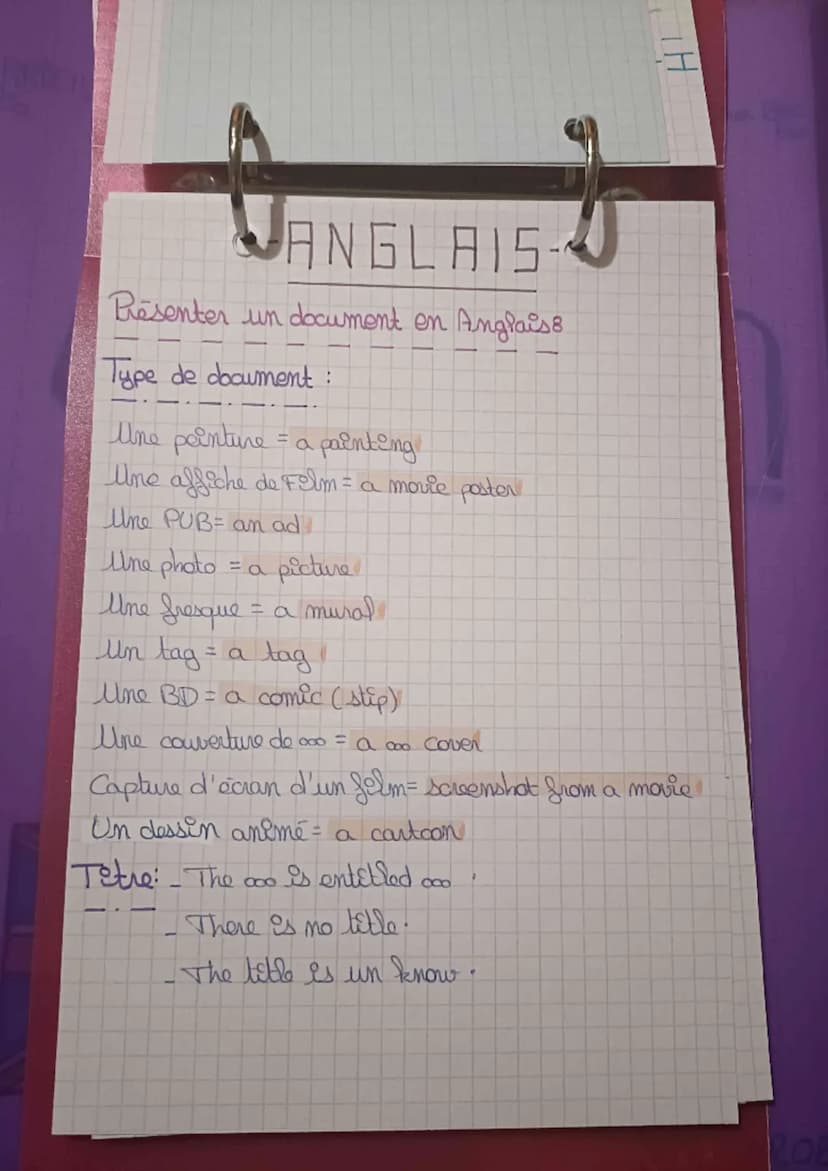 -I
- ANGLAIS -
Présenter un document en Anglais :
Type de document :
Une peinture = a painting
Une affiche de Film = a movie poster
Une PUB = an ad
Une photo = a picture
Une fresque = a mural
Un tag = a tag
Une BD = a comic (stip)
Une couverture de ooo = a ooo cover
Capture d'écran d'un film = screenshot from a movie
Un dessin animé = a cartoon
Titre : - The ooo is entitled ooo .
- There is no title.
- The title is un know.